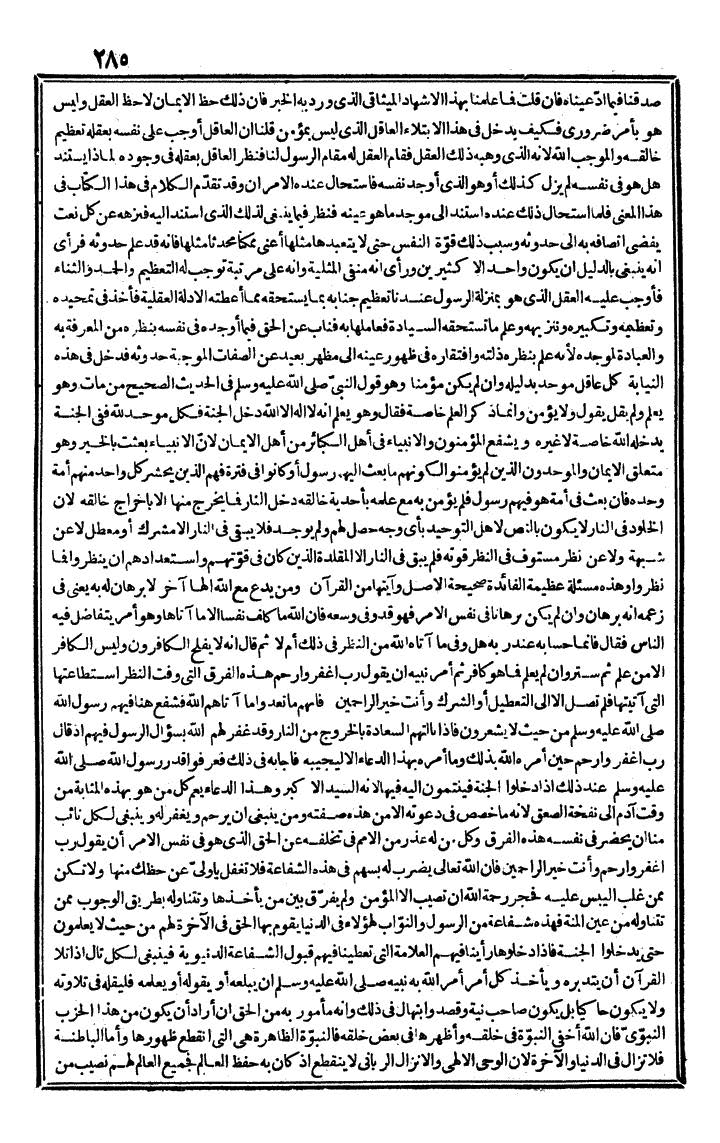 ٢٨٥
صدقنا فيما ادّعيناه فان قلت فما علمنا بهذا الاشهاد الميثاقى الذى ورد به الخبر فان ذلك حظ الايمان لا حظ العقل وليس
هو بأمر ضرورى فكيف يدخل فى هذا الابتلاء العاقل الذى ليس بمؤمن قلنا ان العاقل أوجب على نفسه بعقله تعظيم
خالقه والموجب الله لانه الذى وهبه ذلك العقل فقام العقل له مقام الرسول لنا فنظر العاقل بعقله فى وجوده لماذا يستند
هل هو فى نفسه لم يزل كذلك أو هو الذى أوجد نفسه فاستحال عنده الامران وقد تقدّم الكلام فى هذا الكتاب فى
هذا المعنى فلما استحال ذلك عنده استند الى موجد ما هو عينه فنظر فيما ينبغى لذلك الذى استند اليه فنزهه عن كل نعت
يفضى اتصافه به الى حدوثه وسبب ذلك قوّة النفس حتى لا يتعبدها مثلها أعنى ممكنا محدثا مثلها فانه قد علم حدوثه فرأى
انه ينبغى بالدليل ان يكون واحد الا كثيرين ورأى انه منفى المثلية وانه على مرتبة توجب له التعظيم والحمد والثناء
فأوجب عليه العقل الذى هو بمنزلة الرسول عندنا تعظيم جنابه بما يستحقه مما أعطته الادلة العقلية فأخذ فى تمجيده
وتعظيمه وتكبيره وتنزيهه وعلم ما تستحقه السيادة فعاملها به فناب عن الحق فيما أوجده فى نفسه بنظره من المعرفة به
والعبادة لموجده لأنه علم بنظره ذلته وافتقاره فى ظهور عينه الى مظهر بعيد عن الصفات الموجبة حدوثه فدخل فى هذه
النيابة كل عاقل موحد بدليله وان لم يكن مؤمنا وهو قول النبىّ صلى الله عليه وسلم فى الحديث الصحيح من مات وهو
يعلم ولم يقل يقول ولا يؤمن وانما ذكر العلم خاصة فقال وهو يعلم انه لا اله الا الله دخل الجنة فكل موحد لله ففى الجنة
يدخله الله خاصة لا غيره ويشفع المؤمنون والانبياء فى أهل الكبائر من أهل الايمان لانّ الانبياء بعثت بالخبر وهو
متعلق الايمان والموحدون الذين لم يؤمنوا لكونهم ما بعث اليهم رسول أو كانوا فى فترة فهم الذين يحشر كل واحد منهم أمة
وحده فان بعث فى أمة هو فيهم رسول فلم يؤمن به مع علمه بأحدية خالقه دخل النار فما يخرج منها الا باخراج خالقه لان
الخلود فى النار لا يكون بالنص لاهل التوحيد بأى وجه حصل لهم ولم يوجد فلا يبقى فى النار الا مشرك أو معطل لا عن
شبهة ولا عن نظر مستوف فى النظر قوته فلم يبق فى النار الا المقلدة الذين كان فى قوّتهم واستعدادهم ان ينظروا فما
نظروا وهذه مسئلة عظيمة الفائدة صحيحة الاصل وآيتها من القرآن ومن يدع مع الله الها آخر لا برهان له به يعنى فى
زعمه انه برهان وان لم يكن برهانا فى نفس الامر فهو قدوفى وسعه فان الله ما كلف نفسا الا ما آتاها وهو أمر يتفاضل فيه
الناس فقال فانما حسابه عند ربه هل وفى ما آتاه الله من النظر فى ذلك أم لا ثم قال انه لا يفلح الكافرون وليس الكافر
الا من علم ثم ستر وان لم يعلم فما هو كافر ثم أمر نبيه ان يقول رب اغفر وارحم هذه الفرق التى وفت النظر استطاعتها
التى آتيتها فلم تصل الا الى التعطيل أو الشرك وأنت خير الراحمين فانهم ما تعدوا ما آتاهم الله فشفع هنا فيهم رسول الله
صلى الله عليه وسلم من حيث لا يشعرون فاذا نالتهم السعادة بالخروج من النار وقد غفر لهم الله بسؤال الرسول فيهم اذ قال
رب اغفر وارحم حين أمره الله بذلك وما أمره بهذا الدعاء الا ليجيبه فأجابه فى ذلك فعرفوا قدر رسول الله صلى الله
عليه وسلم عند ذلك اذا دخلوا الجنة فينتمون اليه فيها لانه السيد الاكبر وهذا الدعاء يعم كل من هو بهذه المثابة من
وقت آدم الى نفخة الصعق لانه ما خصص فى دعوته الا من هذه صفته ومن ينبغى ان يرحم ويغفر له وينبغى لكل نائب
منا ان يحضر فى نفسه هذه الفرق وكل من له عذر من الامم فى تخلفه عن الحق الذى هو فى نفس الامر أن يقول رب
اغفر وارحم وأنت خير الراحمين فان الله تعالى يضرب له بسهم فى هذه الشفاعة فلا تغفل ياولىّ عن حظك منها ولا تكن
ممن غلب اليبس عليه فحجر رحمة الله ان تصيب الا المؤمن ولم يفرّق بين من يأخذها وتتناوله بطريق الوجوب ممن
تتناوله من عين المنة فهذه شفاعة من الرسول والنوّاب لهؤلاء فى الدنيا يقوم بها الحق فى الآخرة لهم من حيث لا يعلمون
حتى يدخلوا الجنة فاذا دخلوها رأينا فيهم العلامة التى تعطينا فيهم قبول الشفاعة الدنيوية فينبغى لكل تال اذا تلا
القرآن أن يتدبره ويأخذ كل أمر أمر الله به نبيه صلى الله عليه وسلم ان يبلغه أو يقوله أو يعلمه فليقله فى تلاوته
ولا يكون حاكيا بل يكون صاحب نية وقصد وابتهال فى ذلك وانه مأمور به من الحق ان أراد أن يكون من هذا الحزب
النبوىّ فان الله أخفى النبوّة فى خلقه وأظهرها فى بعض خلقه فالنبوّة الظاهرة هى التى انقطع ظهورها وأما الباطنة
فلا تزال فى الدنيا والآخرة لان الوحى الالهى والانزال الربانى لا ينقطع اذ كان به حفظ العالم فجميع العالم لهم نصيب من